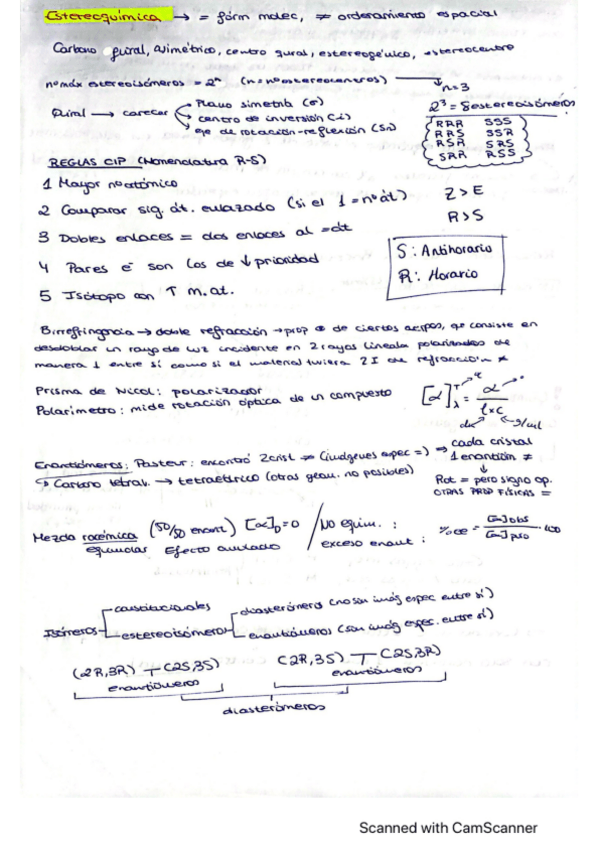 Estereoquímica → = fórm molec, ≠ ordenamiento espacial
Carbono quiral, asimétrico, centro quiral, estereogénico, estereocentro
nº máx estereoisómeros = 2ⁿ (n = nº estereocentros) → n=3
2³ = 8 estereoisómeros
Quiral → carecer
Plano simetría (σ)
centro de inversión (i)
eje de rotación-reflexión (Sn)
RRR SSS
RRS SSR
RSR SRS
SRR RSS
REGLAS CIP (Nomenclatura R-S)
1 Mayor nº atómico
2 Comparar sig. át. enlazado (si el 1 = nº át)
Z > E
R > S
3 Dobles enlaces = dos enlaces al = át
4 Pares e⁻ son los de ↓ prioridad
5 Isótopo con ↑ m. at.
S: Antihorario
R: Horario
Birrefringencia → doble refracción → prop de ciertos cuerpos, que consiste en
desdoblar un rayo de luz incidente en 2 rayos lineala polarizados de
manera ⊥ entre sí como si el material tuviera 2 I de refracción ≠
Prisma de Nicol: polarizador
Polarímetro: mide rotación óptica de un compuesto
[α]ᵀλ = α / l×c
dm g/ml
Enantiómeros: Pasteur: encontró 2 crist ≠ (imágenes espec =) → cada cristal
1 enantióm ≠
↳ Carbono tetral. → tetraédrico (otras geom. no posibles)
Rot = pero signo op.
otras prop físicas =
Mezcla racémica (50/50 enant) [α]D = 0 / No equim. :
equimolar Efecto anulado / exceso enant :
%ee = [α]obs / [α]pso · 100
Isómeros
constitucionales
estereoisómeros
diasterómeros (no son imág espec entre sí)
enantiómeros (son imág espec. entre sí)
(2R,3R) ⊤ (2S,3S) (2R,3S) ⊤ (2S,3R)
enantiómeros enantiómeros
diasterómeros
Scanned with CamScanner